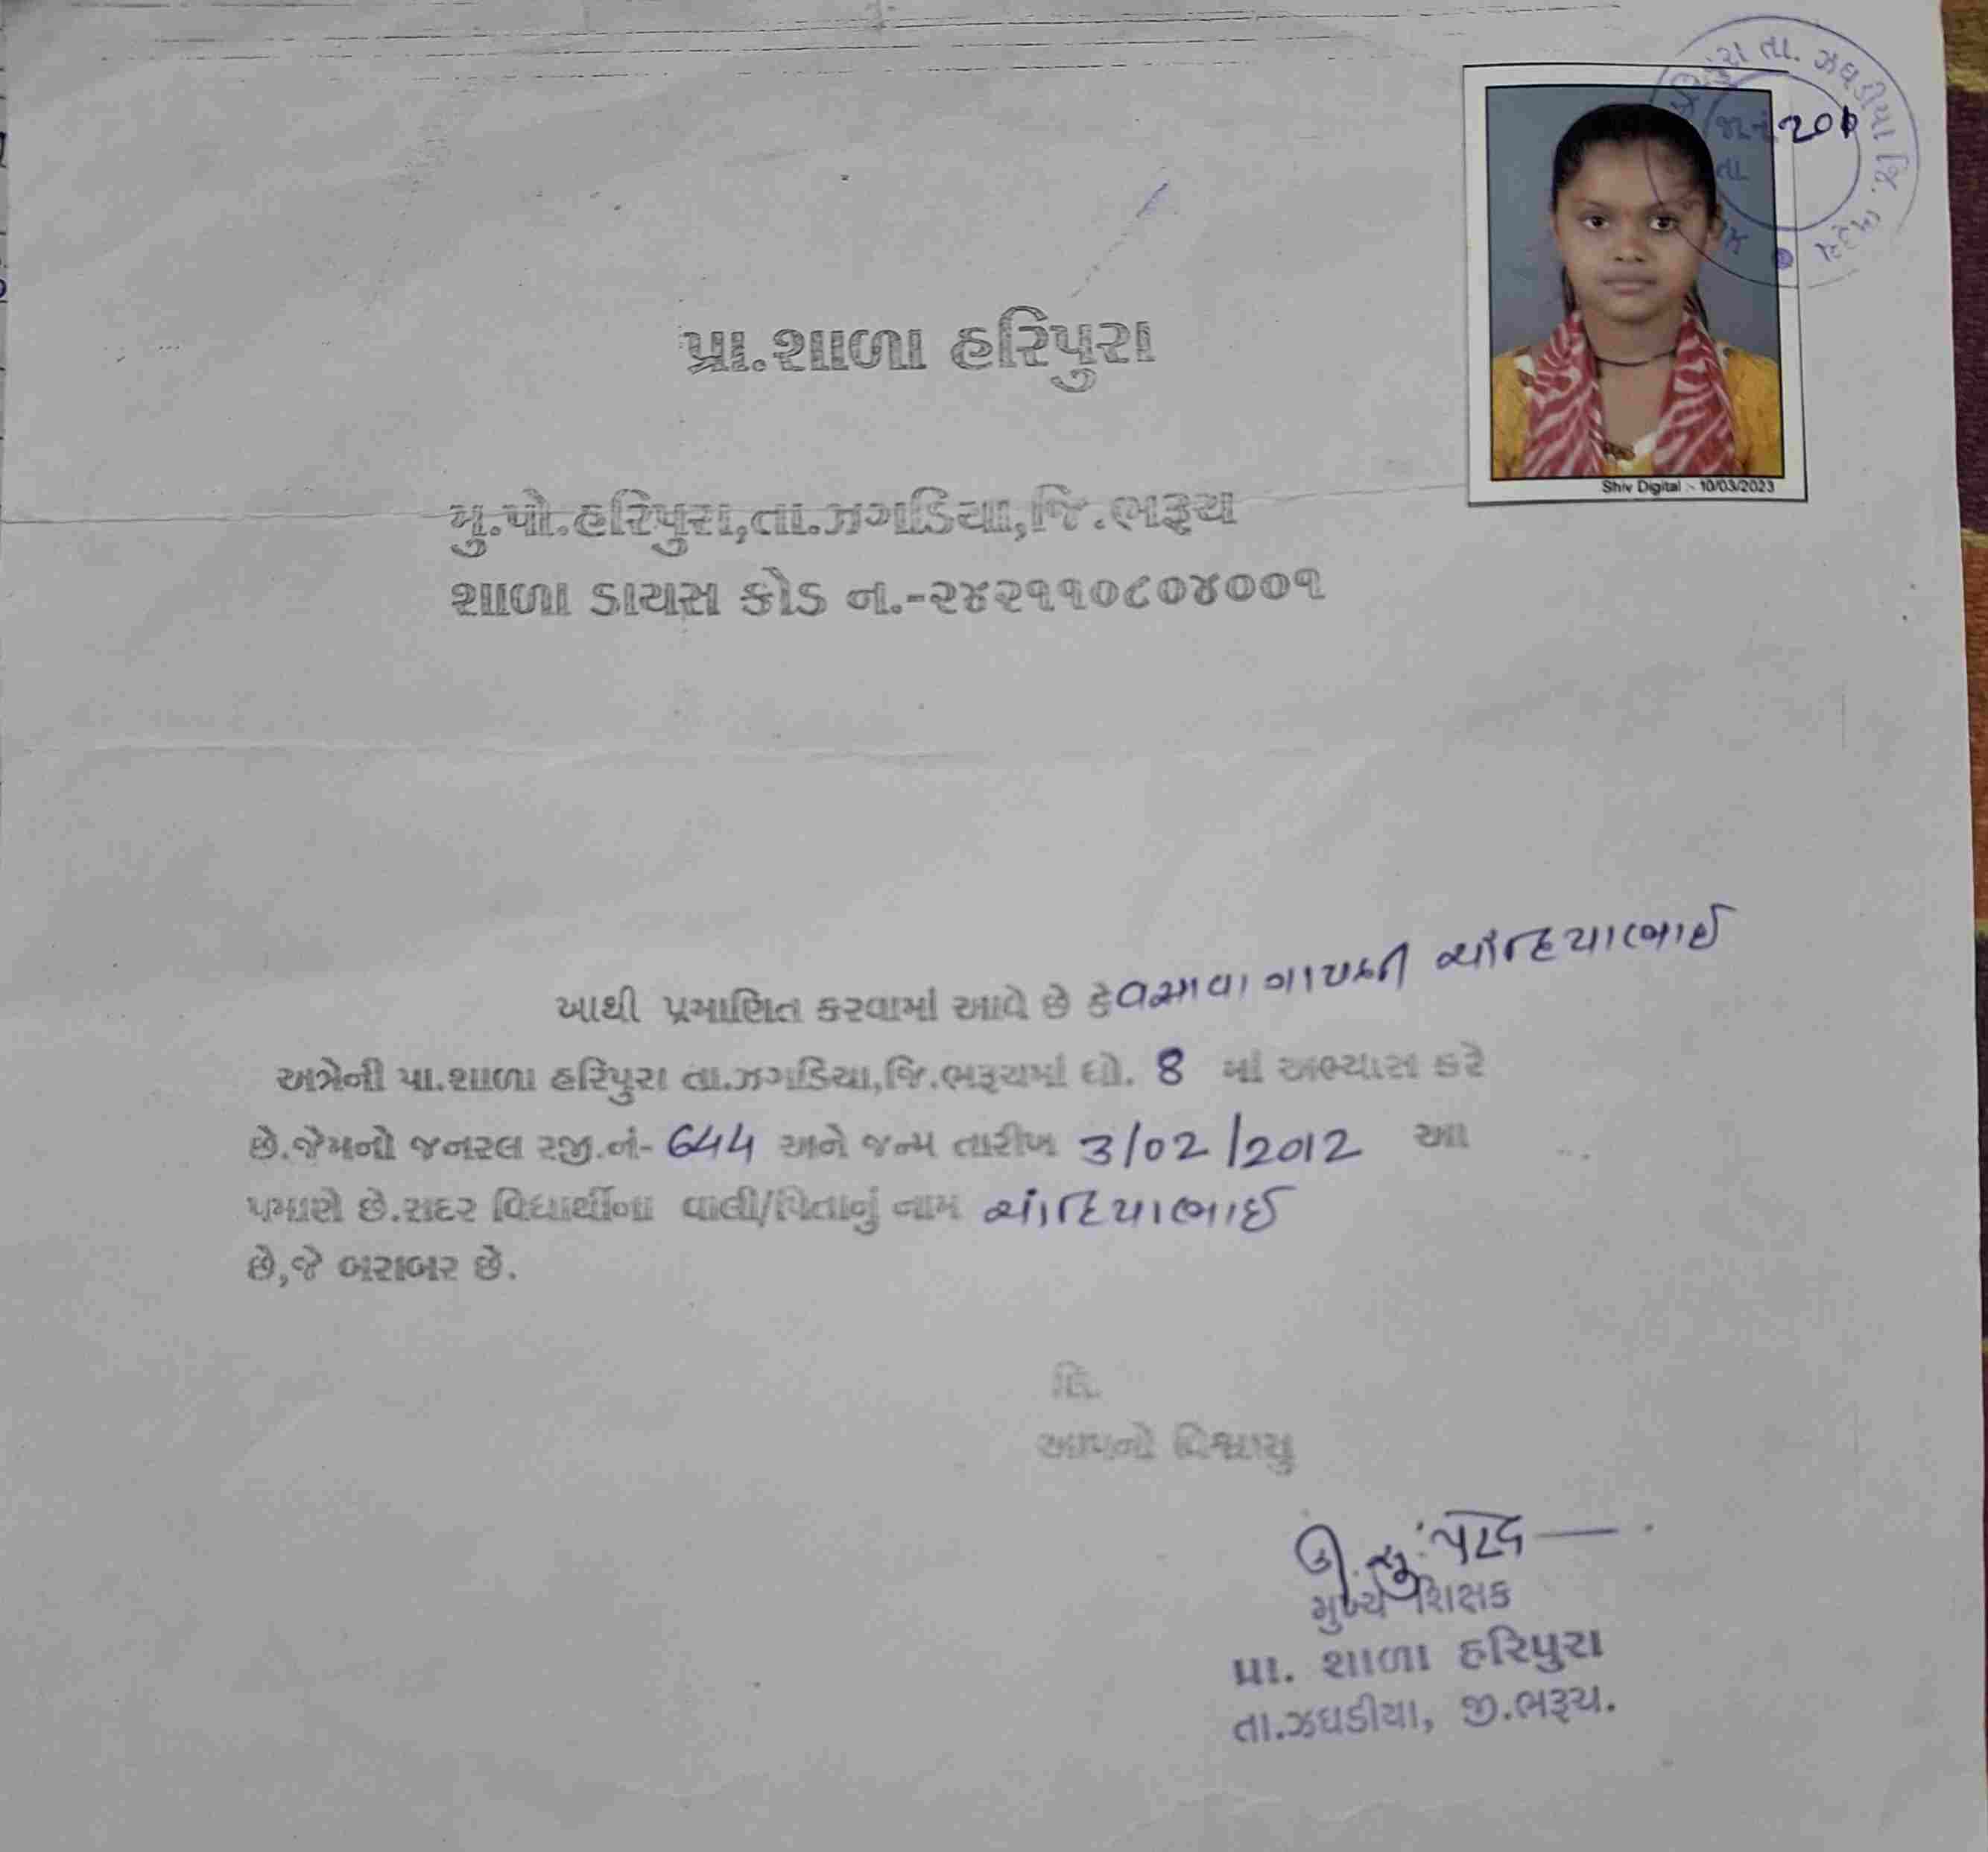 તા. ઝઘડીયા જિ. ભરૂચ
પ્રા.શાળા હરિપુરા
Shiv Digital - 10/03/2023
મુ.પો.હરિપુરા,તા.ઝગડિયા,જિ.ભરૂચ
શાળા ડાયસ કોડ ન.-૨૪૨૧૧૦૮૦૪૦૦૧
આથી પ્રમાણિત કરવામાં આવે છે કે વસાવા
અત્રેની પા.શાળા હરિપુરા તા.ઝગડિયા,જિ.ભરૂચમાં ધો. 8 માં અભ્યાસ કરે
છે.જેમનો જનરલ રજી.નં- 644 અને જન્મ તારીખ 3/02/2012 આ
પમાણે છે.સદર વિધાર્થીના વાલી/પિતાનું નામ
છે,જે બરાબર છે.
લિ.
આપનો વિશ્વાસુ
મુખ્ય શિક્ષક
પ્રા. શાળા હરિપુરા
તા.ઝઘડીયા, જી.ભરૂચ.